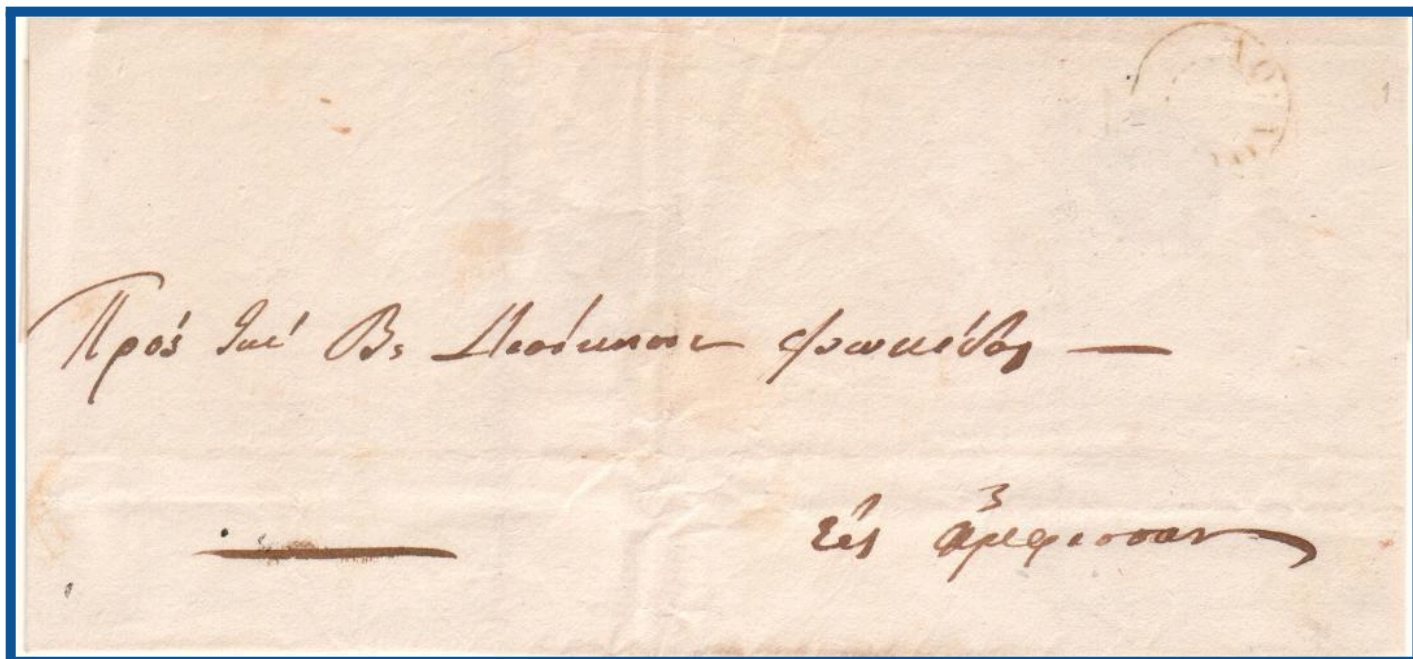 Πρὸς τὴν Β. Διοίκησιν Φωκίδος
Εἰς Ἄμφισσαν